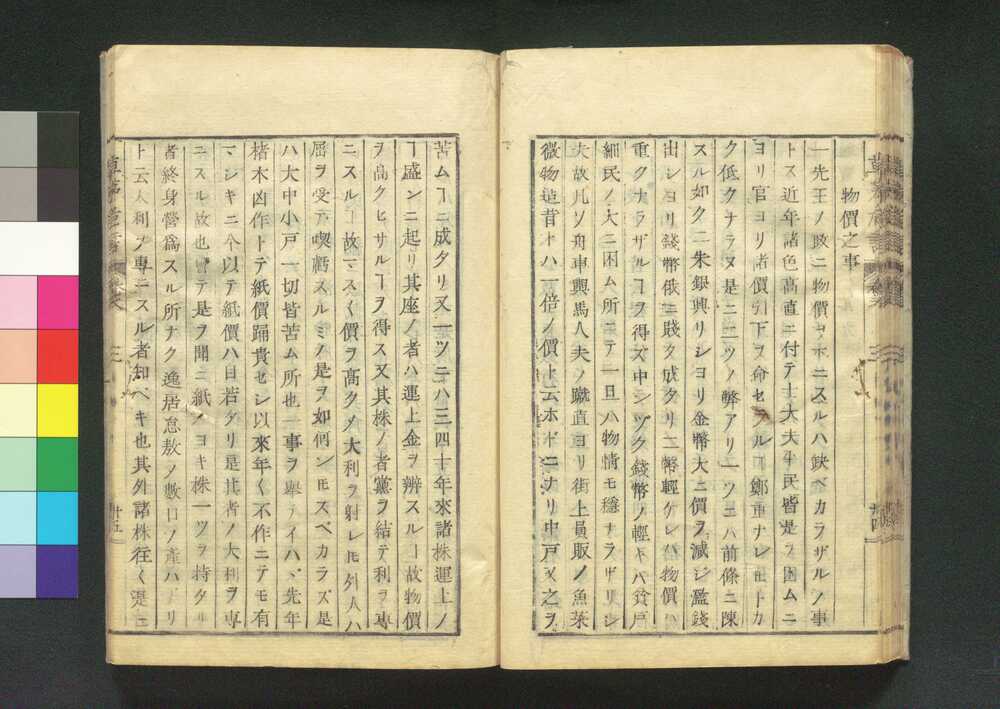 物價之事
一先王ノ政ニ物價ヲ平ニスルハ缺ベカラザルノ事
トス近年諸色高直ニ付テ士大夫平民皆是ヲ困ムニ
ヨリ官ヨリ諸價引下ヲ命セラルヿ鄭重ナレ𪜈トカ
ク低クナラヌ是ニ二ツノ弊アリ一ツニハ前條ニ陳
スル如ク二朱銀興リシヨリ金幣大ニ價ヲ減ジ濫錢
出シヨリ錢幣俄ニ賤ク成タリ二幣輕ケレハ物價ハ
重クナラザルヿヲ得ズ中ンヅク錢幣ノ輕キハ貧戶
細民ノ大ニ困ム所ニテ一旦ハ物情モ穩ナラザリシ
夫故凡ソ舟車輿馬人夫ノ職直ヨリ街上負販ノ魚菜
微物迄昔トハ一倍ノ價ト云ホドニナリ中戶又之ヲ
苦ムヿニ成タリ又一ツニハ三四十年來諸株運上ノ
ヿ盛ンニ起リ其座ノ者ハ運上金ヲ辨スルヿ故物價
ヲ高クセサルヿヲ得ス又其株ノ者黨ヲ結テ利ヲ專
ニスルヿ故ニスく價ヲ高クメ大利ヲ射レ𪜈外人ハ
屈ヲ受テ喫虧スルミノ是ヲ如何ン𪜈スベカラズ是
ハ大中小戶一切皆苦ム所也一事ヲ擧テイハヾ先年
楮木凶作トテ紙價踊貴セシ以來年く不作ニテモ有
マシキニ今以テ紙價ハ自若タリ是其者ノ大利ヲ專
ニスル故也曾テ是ヲ聞ニ紙ノヨキ株一ツヲ持タル
者終身營爲スル所ナク逸居怠敖ノ數口ノ產ハ
ト云大利ヲ專ニスル者知ベキ也其外諸株往く是ニ
三
廿五
廿四